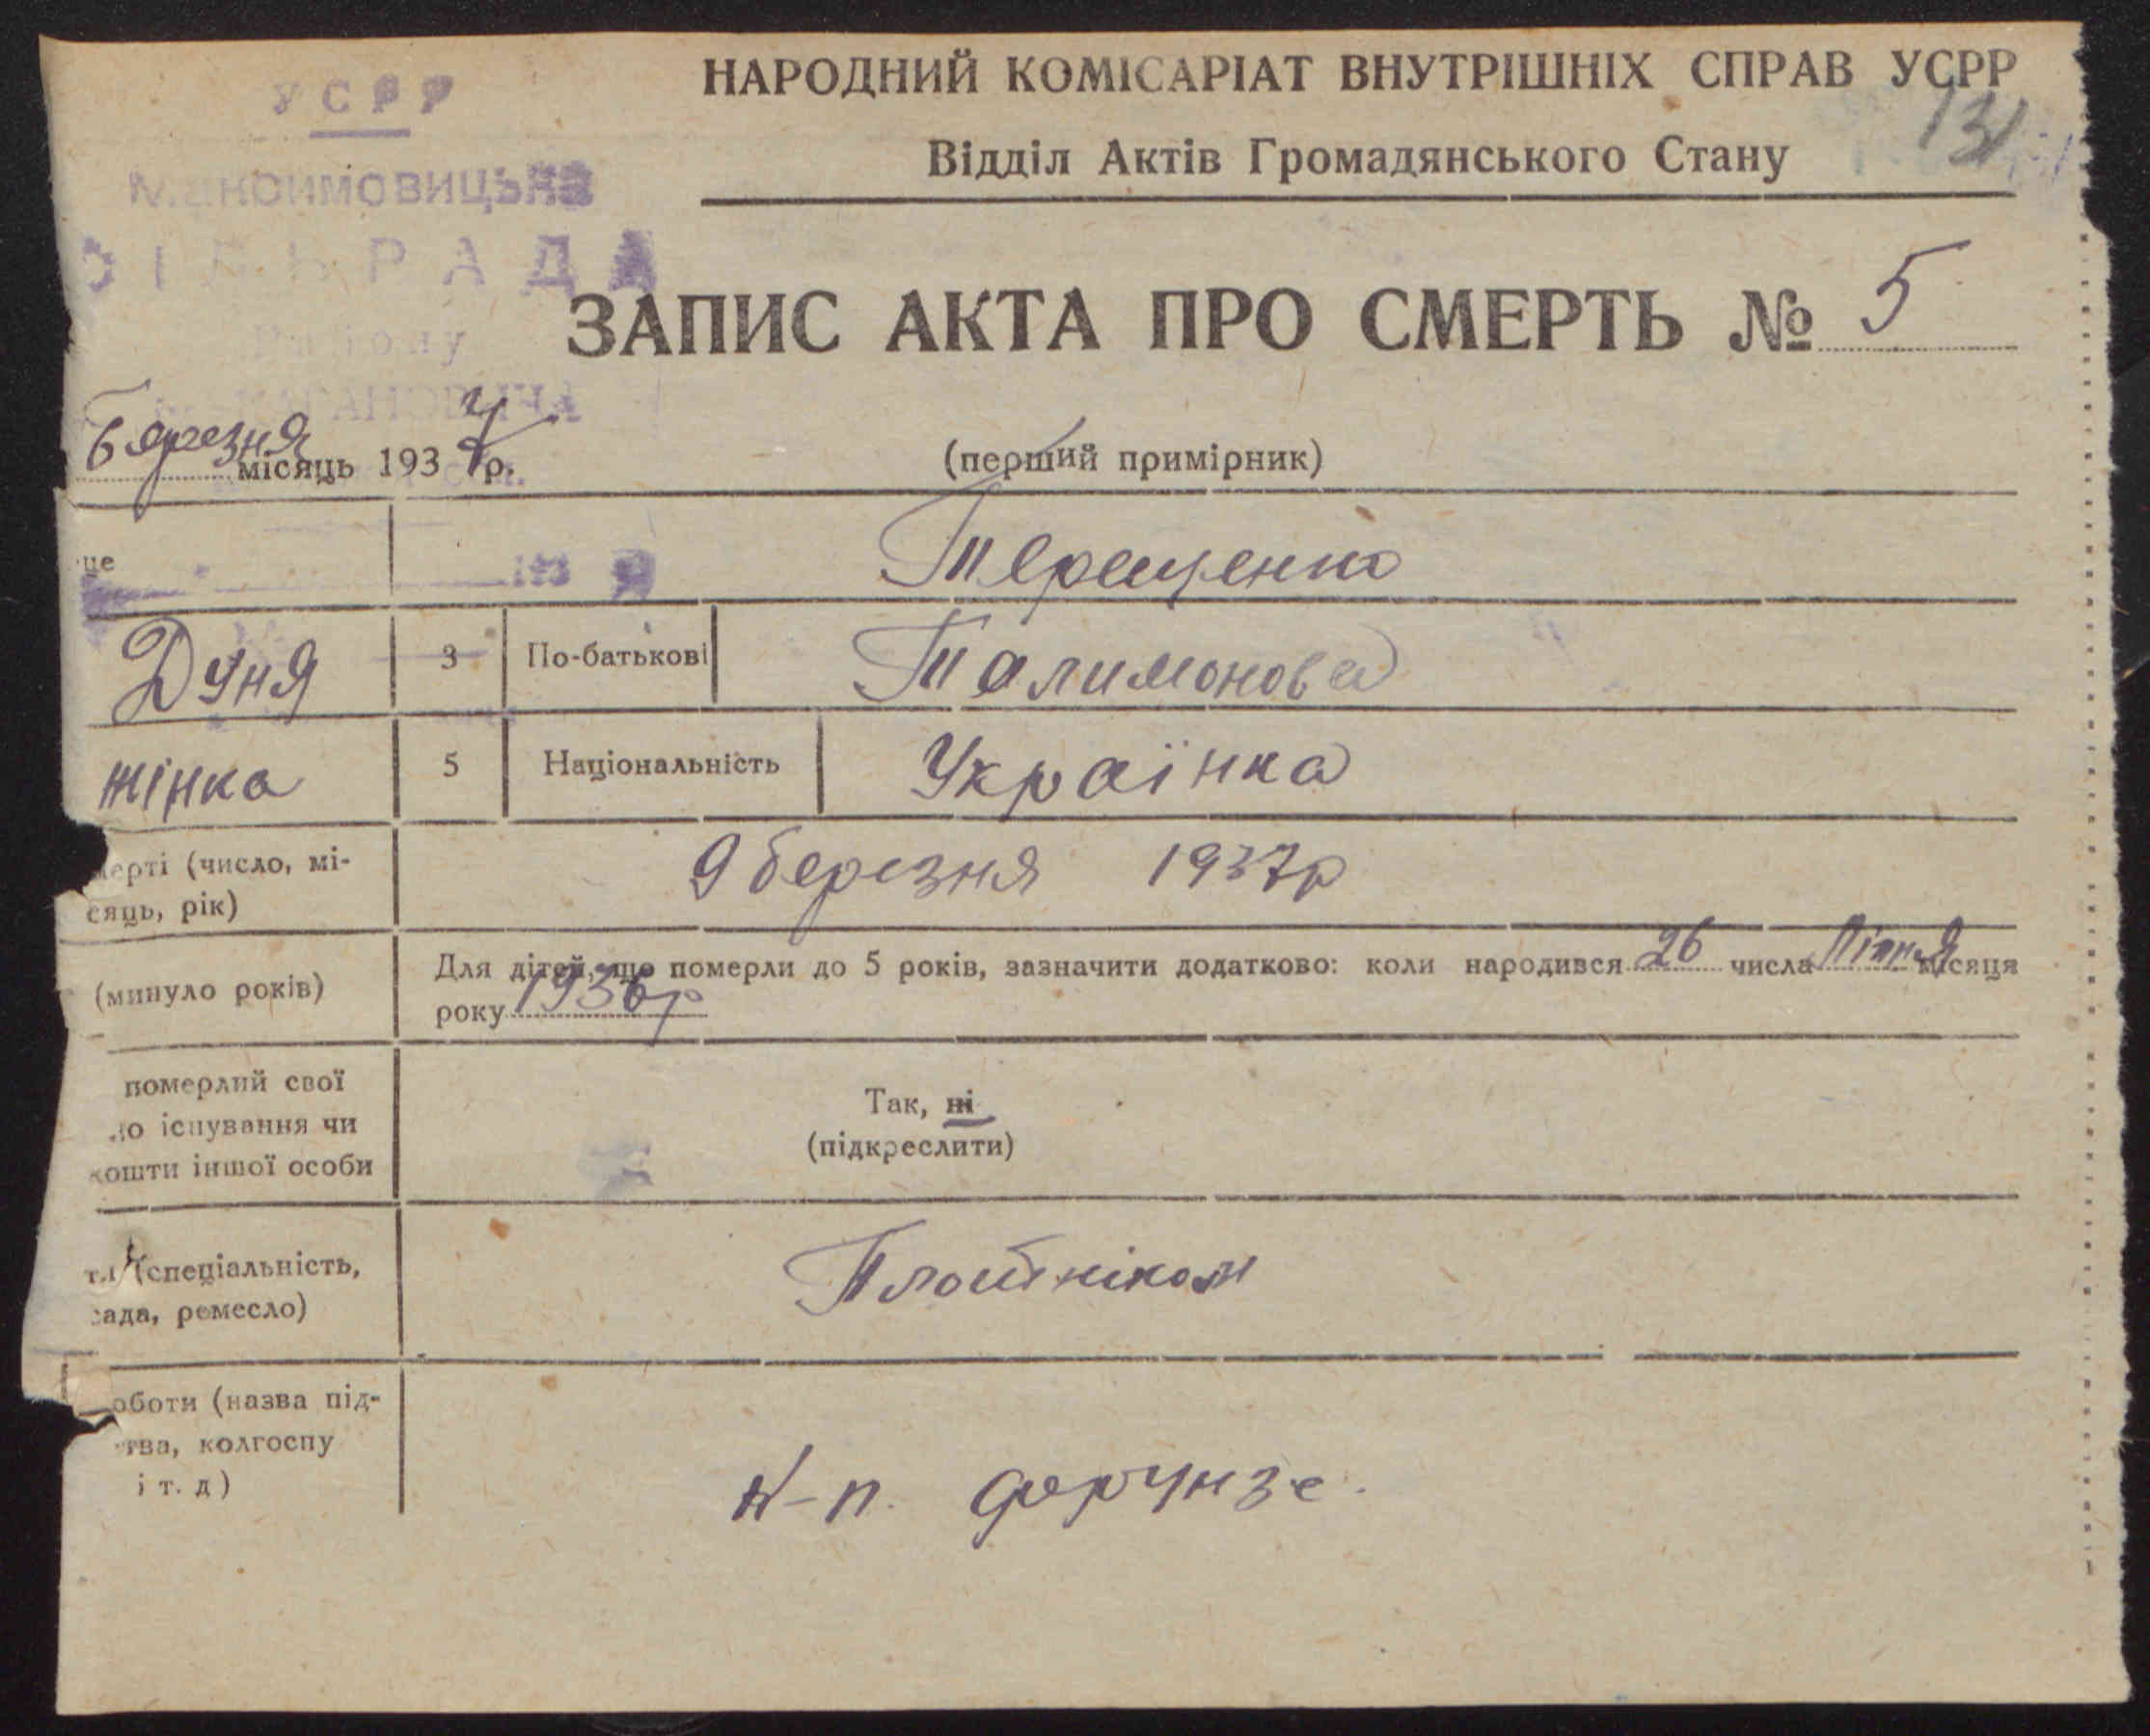 УСРР
НАРОДНИЙ КОМІСАРІАТ ВНУТРІШНІХ СПРАВ УСРР
131
Відділ Актів Громадянського Стану
Максимовицька
СІЛЬРАДА
Району
КАГАНОВИЧА
ЗАПИС АКТА ПРО СМЕРТЬ № 5
березня місяць 1937 р.
(перший примірник)
це
193
Терещенко
Дуня
3
По-батькові
Талимонова
жінка
5
Національність
Українка
мерті (число, мі-
сяць, рік)
9 березня 1937р
(минуло років)
Для дітей, що померли до 5 років, зазначити додатково: коли народився 26 числа Липня місяця
року 1936р
померлий свої
ло існування чи
кошти іншої особи
Так, ні
(підкреслити)
тя (спеціальність,
сада, ремесло)
Плотніком
оботи (назва під-
тва, колгоспу
і т. д)
К-п. Фрунзе.